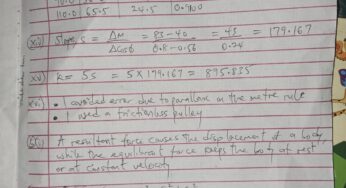 110.0 65.5 24.5 0.900
xiv) Slope, s = ΔM / ΔCosθ = 83-40 / 0.8-0.56 = 43 / 0.24 = 179.167
xv) k = 5s = 5 × 179.167 = 895.835
xvi) • I avoided error due to parallax on the metre rule
• I used a frictionless pulley
A resultant force causes the displacement of a body,
while the equilibrant force keeps the body at rest
or at constant velocity